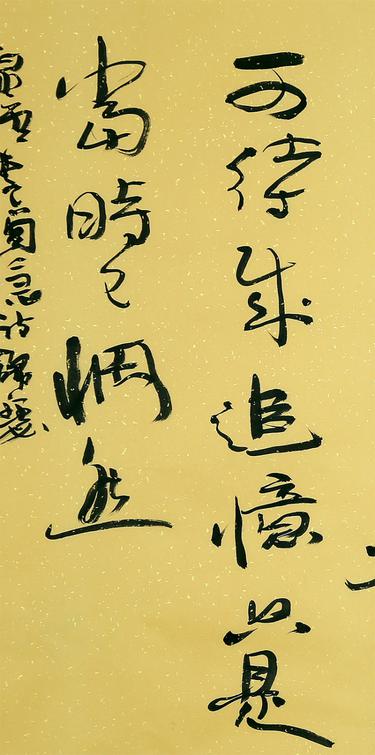 可待成追憶只是
當時已惘然
李商隱詩錦瑟